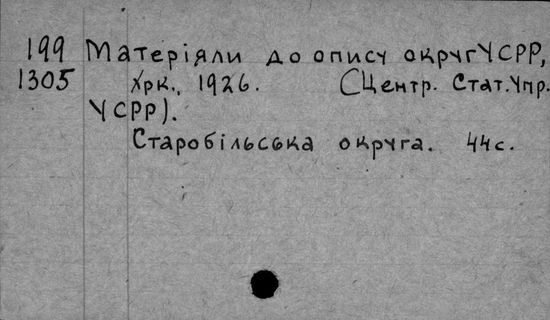 199 Матеріяли до опису округ УСРР,
1305 Хрк., 1926. (Центр. Стат. Упр.
УСРР).
Старобільська округа. 44 с.